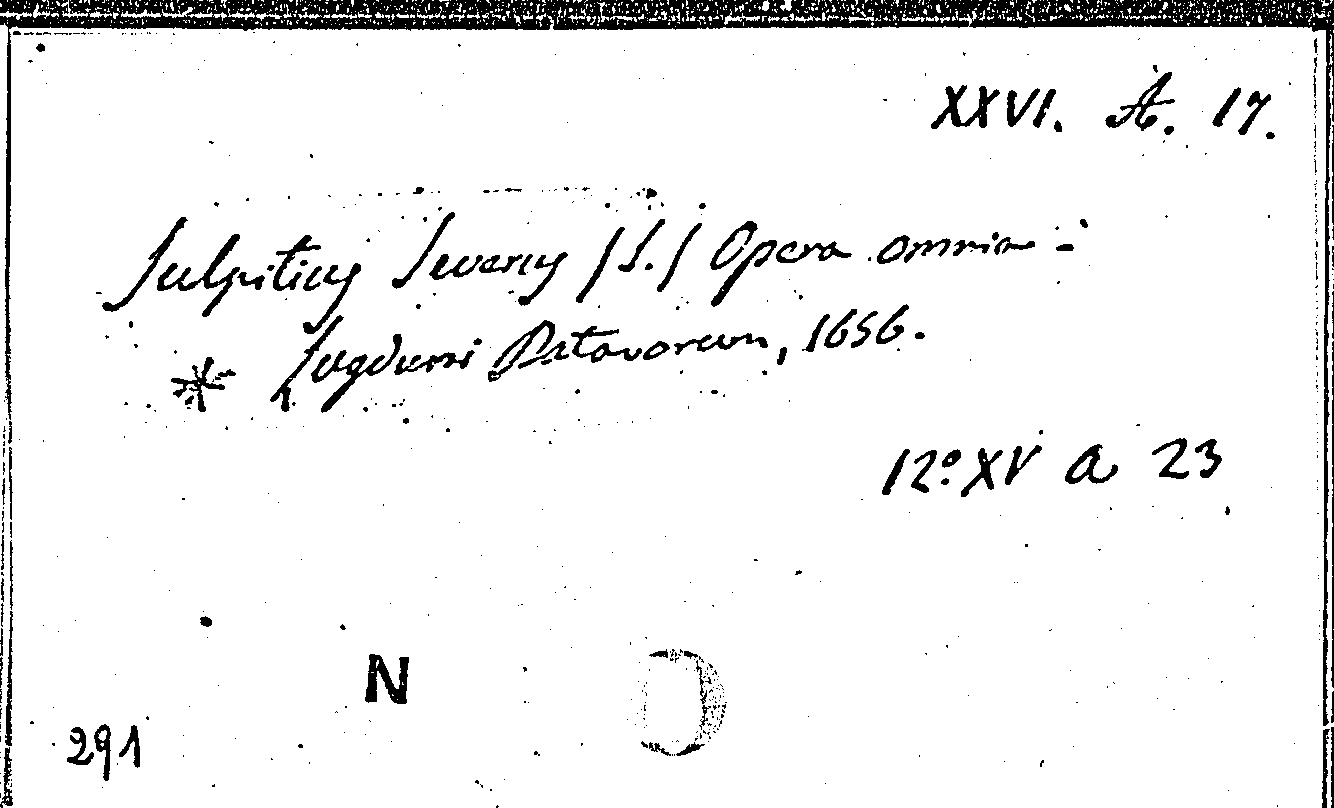 XXVI. A. 17.
Sulpitius Severus /S./ Opera omnia -
* Lugduni Batavorum, 1656.
12º XV a 23
N
291